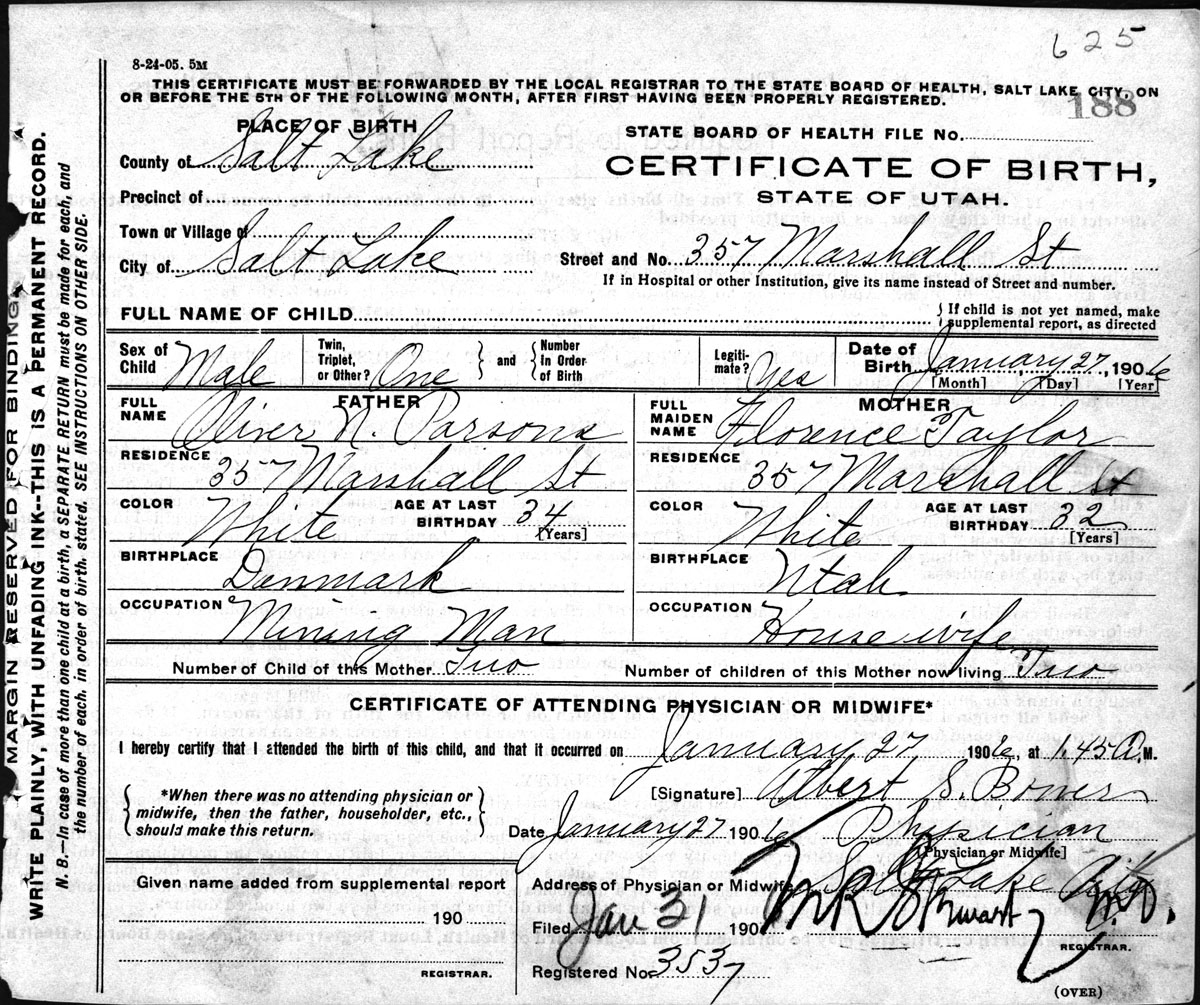 625
8-24-05. 5M
THIS CERTIFICATE MUST BE FORWARDED BY THE LOCAL REGISTRAR TO THE STATE BOARD OF HEALTH, SALT LAKE CITY, ON
OR BEFORE THE 5TH OF THE FOLLOWING MONTH, AFTER FIRST HAVING BEEN PROPERLY REGISTERED.
188
PLACE OF BIRTH
STATE BOARD OF HEALTH FILE No.
County of Salt Lake
CERTIFICATE OF BIRTH,
Precinct of
STATE OF UTAH.
Town or Village of
City of Salt Lake
Street and No. 357 Marshall St
If in Hospital or other Institution, give its name instead of Street and number.
FULL NAME OF CHILD
If child is not yet named, make
supplemental report, as directed
Sex of Child Male
Twin, Triplet, or Other? One
and
Number In Order of Birth
Legiti-mate? Yes
Date of Birth January 27, 1906
[Month] [Day] [Year]
FATHER
FULL NAME Oliver N. Parsons
RESIDENCE 357 Marshall St
COLOR White AGE AT LAST BIRTHDAY 34
[Years]
BIRTHPLACE Denmark
OCCUPATION Mining Man
MOTHER
FULL MAIDEN NAME Florence Taylor
RESIDENCE 357 Marshall St
COLOR White AGE AT LAST BIRTHDAY 32
[Years]
BIRTHPLACE Utah
OCCUPATION House wife
Number of Child of this Mother Two
Number of children of this Mother now living Two
CERTIFICATE OF ATTENDING PHYSICIAN OR MIDWIFE*
I hereby certify that I attended the birth of this child, and that it occurred on January 27 1906, at 1.45 A.M.
*When there was no attending physician or
midwife, then the father, householder, etc.,
should make this return.
[Signature] Albert S. Bower
Date January 27 1906 Physician
[Physician or Midwife]
Given name added from supplemental report
190
REGISTRAR.
Address of Physician or Midwife Salt Lake City
Filed Jan 31 190 Stewart M.D.
REGISTRAR.
Registered No. 3537
(OVER)
MARGIN RESERVED FOR BINDING.
WRITE PLAINLY, WITH UNFADING INK--THIS IS A PERMANENT RECORD.
N. B.—In case of more than one child at a birth, a SEPARATE RETURN must be made for each, and
the number of each, in order of birth, stated. SEE INSTRUCTIONS ON OTHER SIDE.